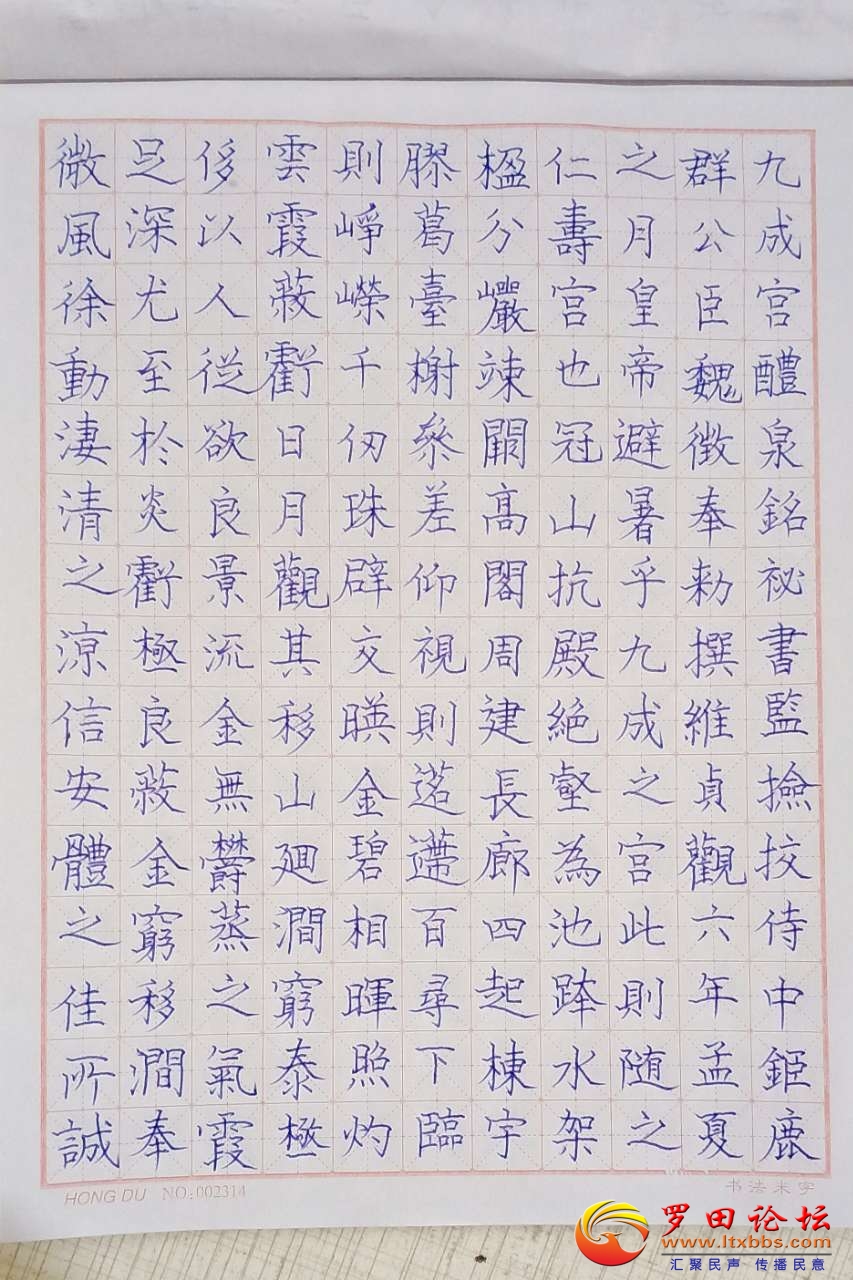 九成宫醴泉銘祕書監撿挍侍中鉅鹿
群公臣魏徵奉勑撰維貞觀六年孟夏
之月皇帝避暑乎九成之宫此則随之
仁壽宫也冠山抗殿絕壑為池跨水架
楹分巖竦闕高閣周建長廊四起棟宇
膠葛臺榭參差仰視則迢遰百尋下臨
則崢嶸千仞珠辟交暎金碧相暉照灼
雲霞蔽虧日月觀其移山廻澗窮泰極
侈以人從欲良景流金無欝蒸之氣霞
足深尤至於炎虧極良蔽金窮移澗奉
微風徐動淒清之涼信安體之佳所誠
HONG DU NO:002314
书法米字
罗田论坛
www.ltxbbs.com
汇聚民声 传播民意